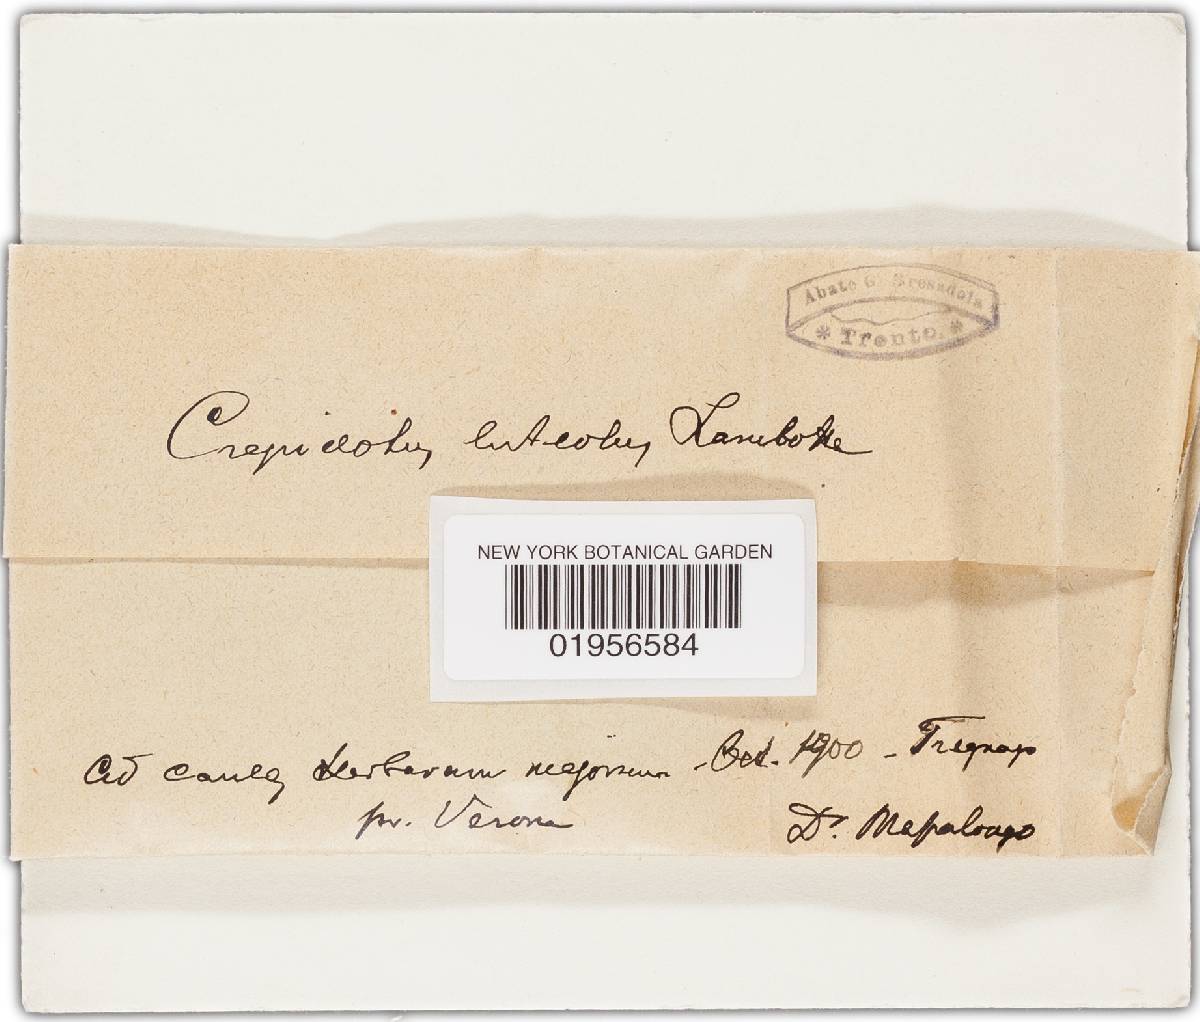 Abate G. Bresadola
* Trento. *
Crepidotus luteolus Lambotte
NEW YORK BOTANICAL GARDEN
01956584
Ad caules herbarum majorum - Oct. 1900 - Tregnago
pr. Verona
Dr. Massalongo